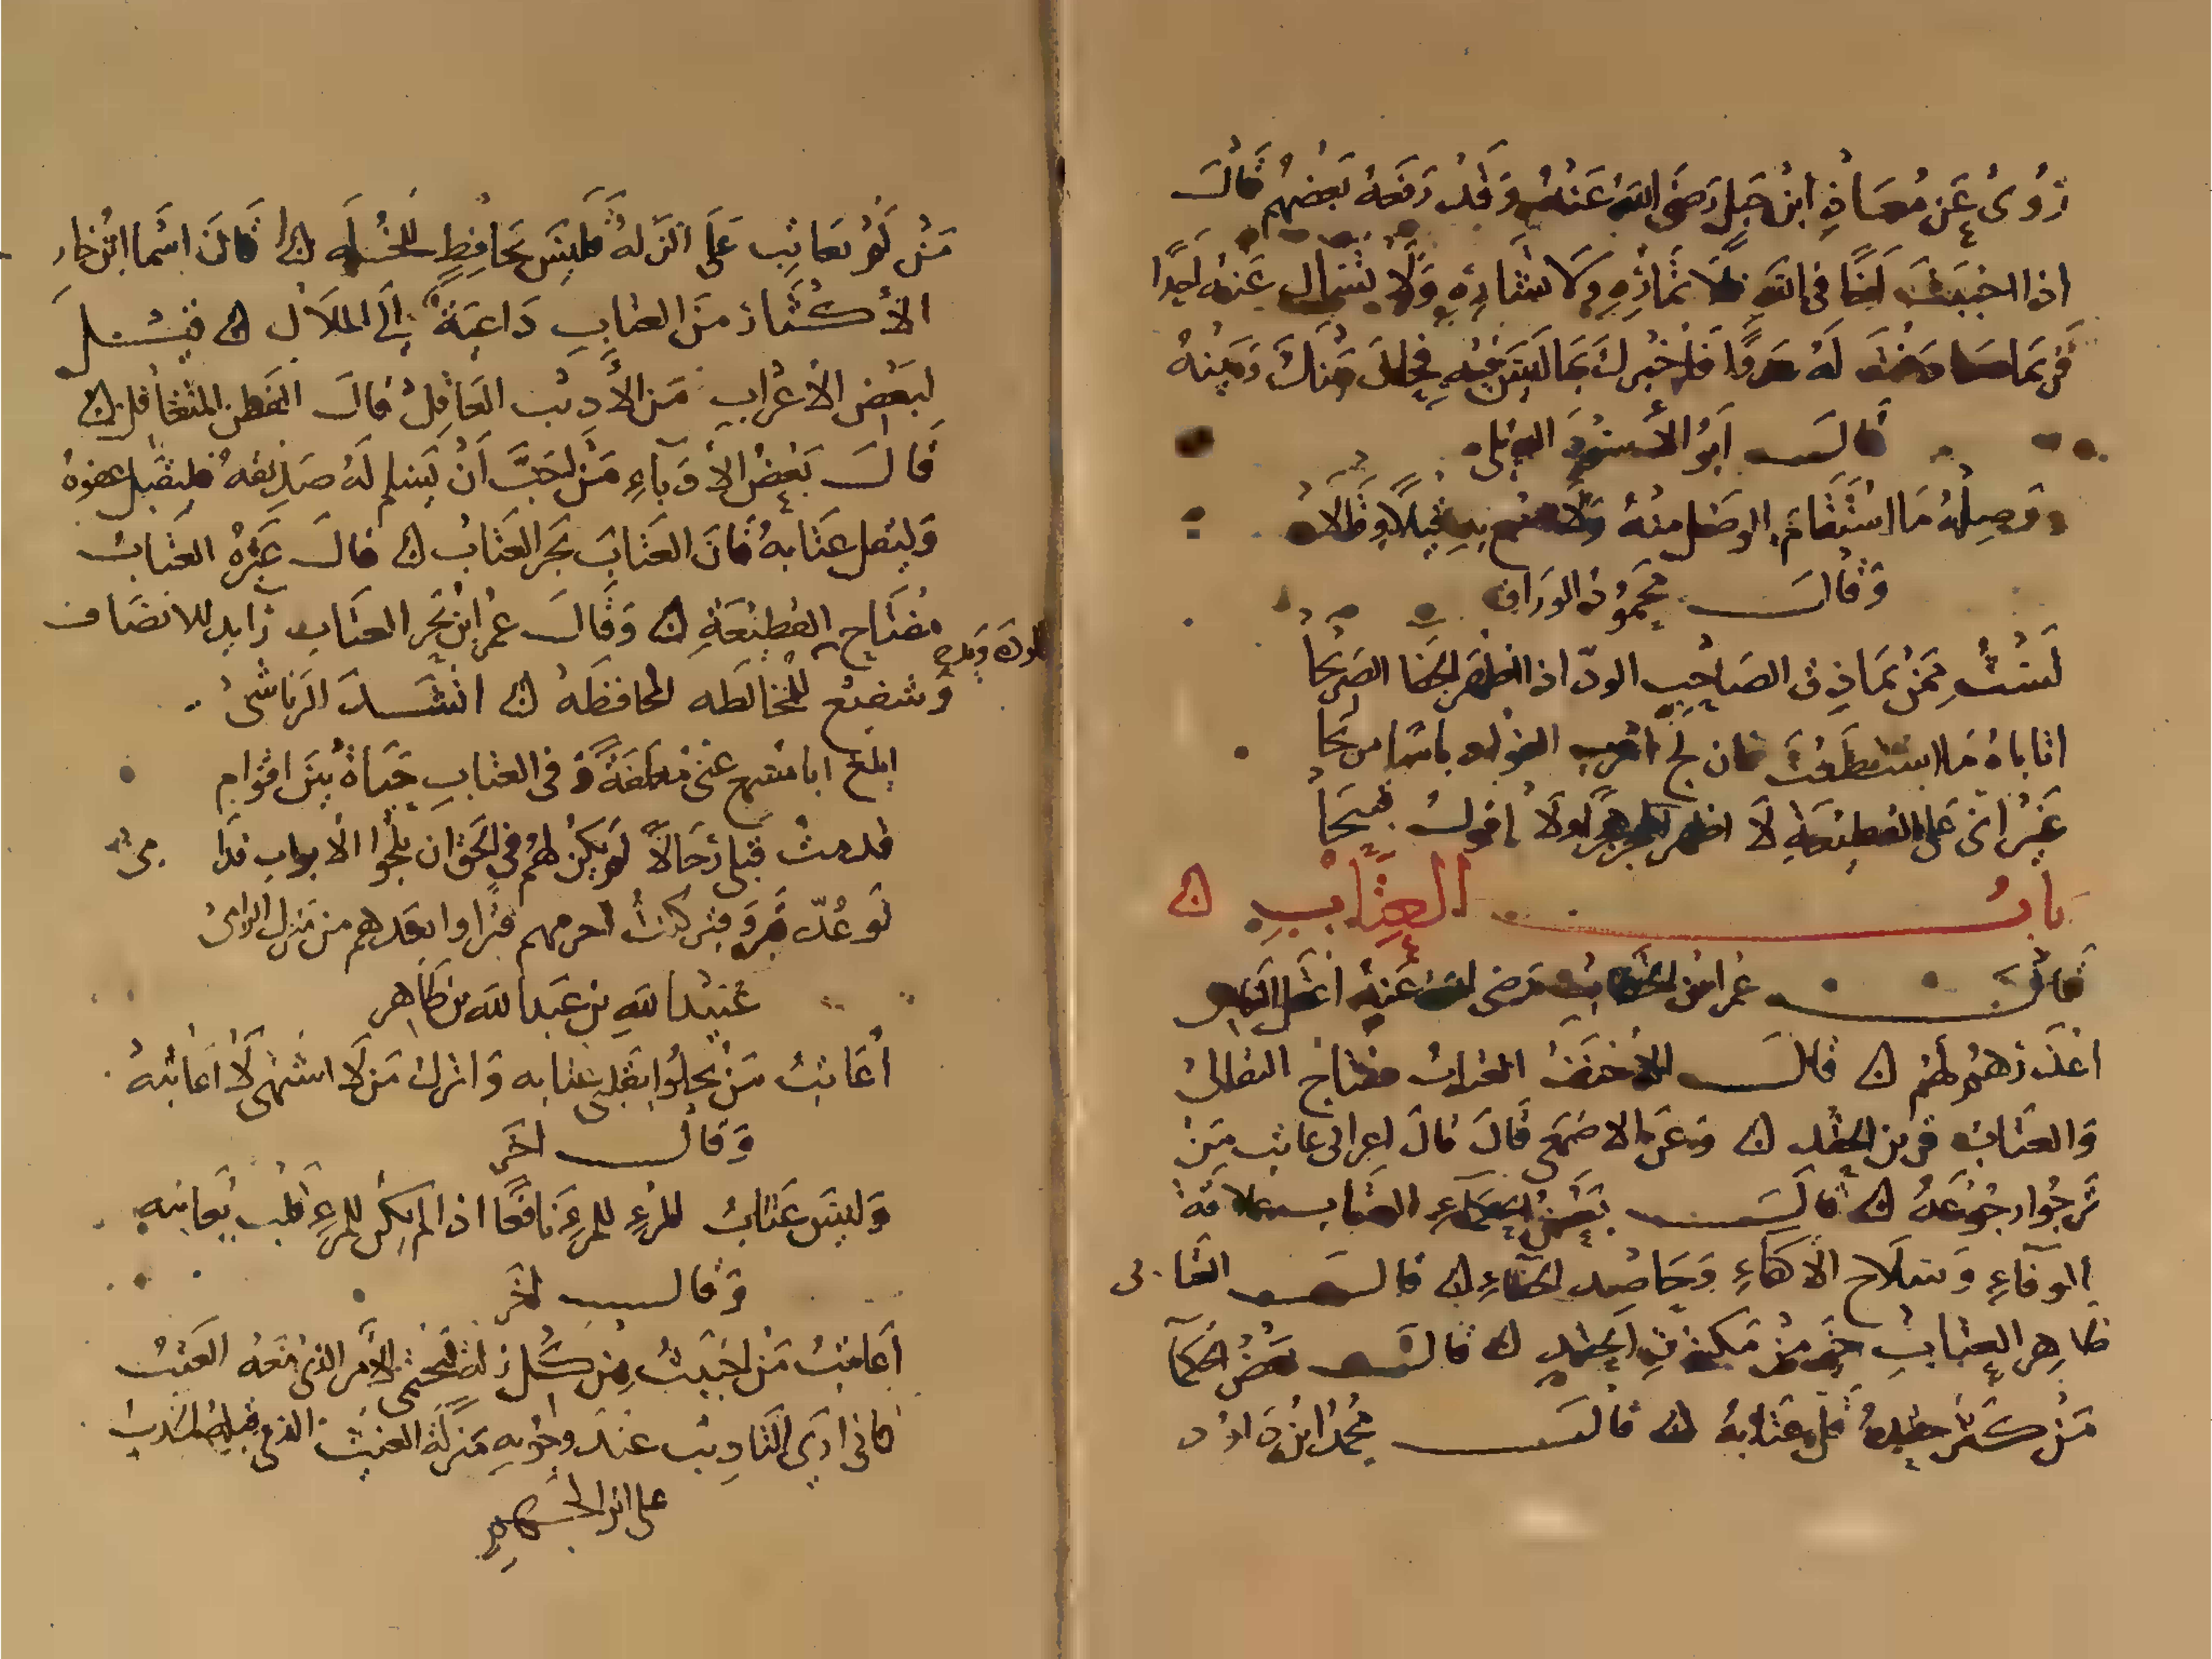 رُوىُ عَن مُعَاذِ ابنُ جَبلٍ رَضىَ اللهُ عَنهُ وَقد رَفعَهُ بَعضهُم قَالَ
اذا احببَتَ اخًا فى اللهِ فلا تمارِهِ ولا تشارِهِ وَلا تسال عَنهُ احدًا
فرُبمَا صَادفت لهُ عدوًا فاخبرك بمَا ليسَ فيهِ فحال بينكَ وَبينهُ
قالَ ابوُ الأسود الديلى
وَصِلهُ مَا استَقامَ الوصل منهُ وَلا تسمع بهِ قيلاً وقالا
وَقالَ محموُد الوراق
لَستُ ممنُ يماذق الصَاحب الودّ اذا اظهرَ الجفا الصَريحا
اتاباهُ مَا استطعتَ فان لج
غيرُ انى على القطيعَةِ لا اظهر هجرًا وَلا اقولُ قبيحاً
بابُ العِتَابِ
قالَ عُمر ابنُ الخطابِ رَضى اللهُ عَنهُ اعقل الناس
اعذرهُم لهُم قالَ الاحنفُ العتابُ مفتاح التقالى
وَالعتابُ قرين الحقد وَعَن الاصمَعى قالَ قالَ اعرابى عاتب مَن
تَرجُوا رجُوعَهُ قالَ بعضُ الحكماءِ العتاب علامة
الوَفاءِ وَسلاح الاكفاءِ وَحاصد الجفاءِ قالَ العَتابى
ظاهِر العتابِ خيرٌ منُ مَكنون الحقدِ قالَ بعضُ الحكمآ
مَنُ كَثر حقدهُ قل عتابهُ قالَ محمدُ ابنُ دَاوُد
مَنُ لَم يعَاتِب عَلَى الزلة فليسَ بحافظٍ للخلَه قالَ اسما ابنُ خارجه
الأكثار منَ العتابِ دَاعيَةٌ الَى الملاَل قيل
لبَعض الاعرابِ مَن الأديب العاقلُ قالَ الفطن المتغافل
قَالَ بَعضُ الاُدَباءِ مَن احَبَّ اَن يَسلم لَهُ صَديقهُ فليقبل عفوهُ
وَليُقل عتابهُ فانَ العتَابَ يجر العتَاب قالَ غيرهُ العتَابُ
مفتَاح القطيعَةِ وَقالَ عمر ابن بحر العتَاب رَايد للانصَاف
وَشفيع للمخالَطه لمحافظَهُ انشدَ الرَقاشىُ
ابلغ ابا مسمع عنى مغلغلَةً وَ فى العتابِ حَيَاةٌ بَينَ اقوام
قدمتُ قبلى رجَالاً لم يكنُ لهُم فى الحق ان يلجُوا الابواب قدامى
لَو عُدّ قبرٌ وَقبر كنتُ اكرمهم قبرًا وابعدهم من منزل الرامىُ
عُبيد اللهِ بن عَبد الله بن طَاهر
اُعَاتبُ مَن يحلوُا بقلبى عتابه وَاترك مَن لا اشتهى لا اعَاتبهُ
وَقالَ اخَر
وَليسَ عَتابُ المرءِ للمرءِ نافعًا اذا لم يكن للمرءِ لب يعاتبه
وَقالَ اخَر
اعاتبُ مَن احببتُ من كل زلة الأمر الذى مَعَهُ العتبُ
كانى ارَى التَاديبَ عندَ وجُوبهِ مَنزلَة الغيث الذى قبلهُ الجدبُ
على ابن الجهم